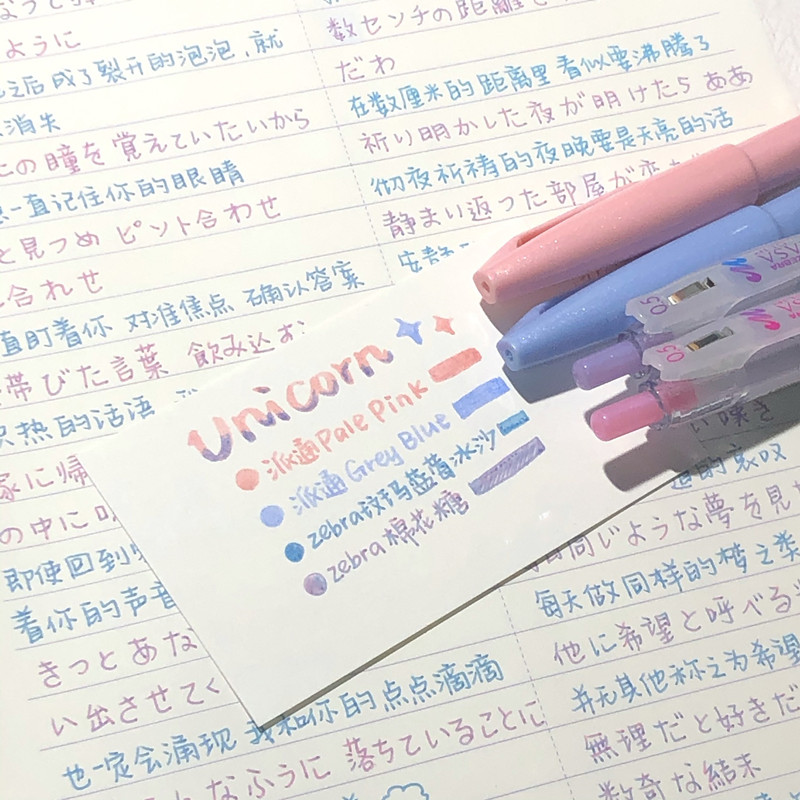 ように
之后成了裂开的泡泡,就
消失
この瞳を覚えていたいから
一直记住你的眼睛
と見つめ ピント合わせ
合わせ
直盯着你 对准焦点 确认答案
帯びた言葉 飲み込む
热的话语
家に帰
の中に
即使回到
着你的声音
きっとあな
い出させてく
我和你的点点滴滴
也一定会涌现
なふうに 落ちていることに
数センチの距離
だわ
在数厘米的距离里 看似要沸腾了
祈り明かした夜が明けたら ああ
彻夜祈祷的夜晚要是天亮的话
静まい返った部屋が
Unicorn
派通Pale Pink
派通Grey Blue
zebra斑玛蓝莓冰沙
zebra棉花糖
ZEBRA
SARASA
0.5
0.5
い嘆き
的哀叹
同じような夢を見
每天做同样的梦之类
他に希望と呼べる
并无其他称之为希望
無理だと好きだ
数奇な結末